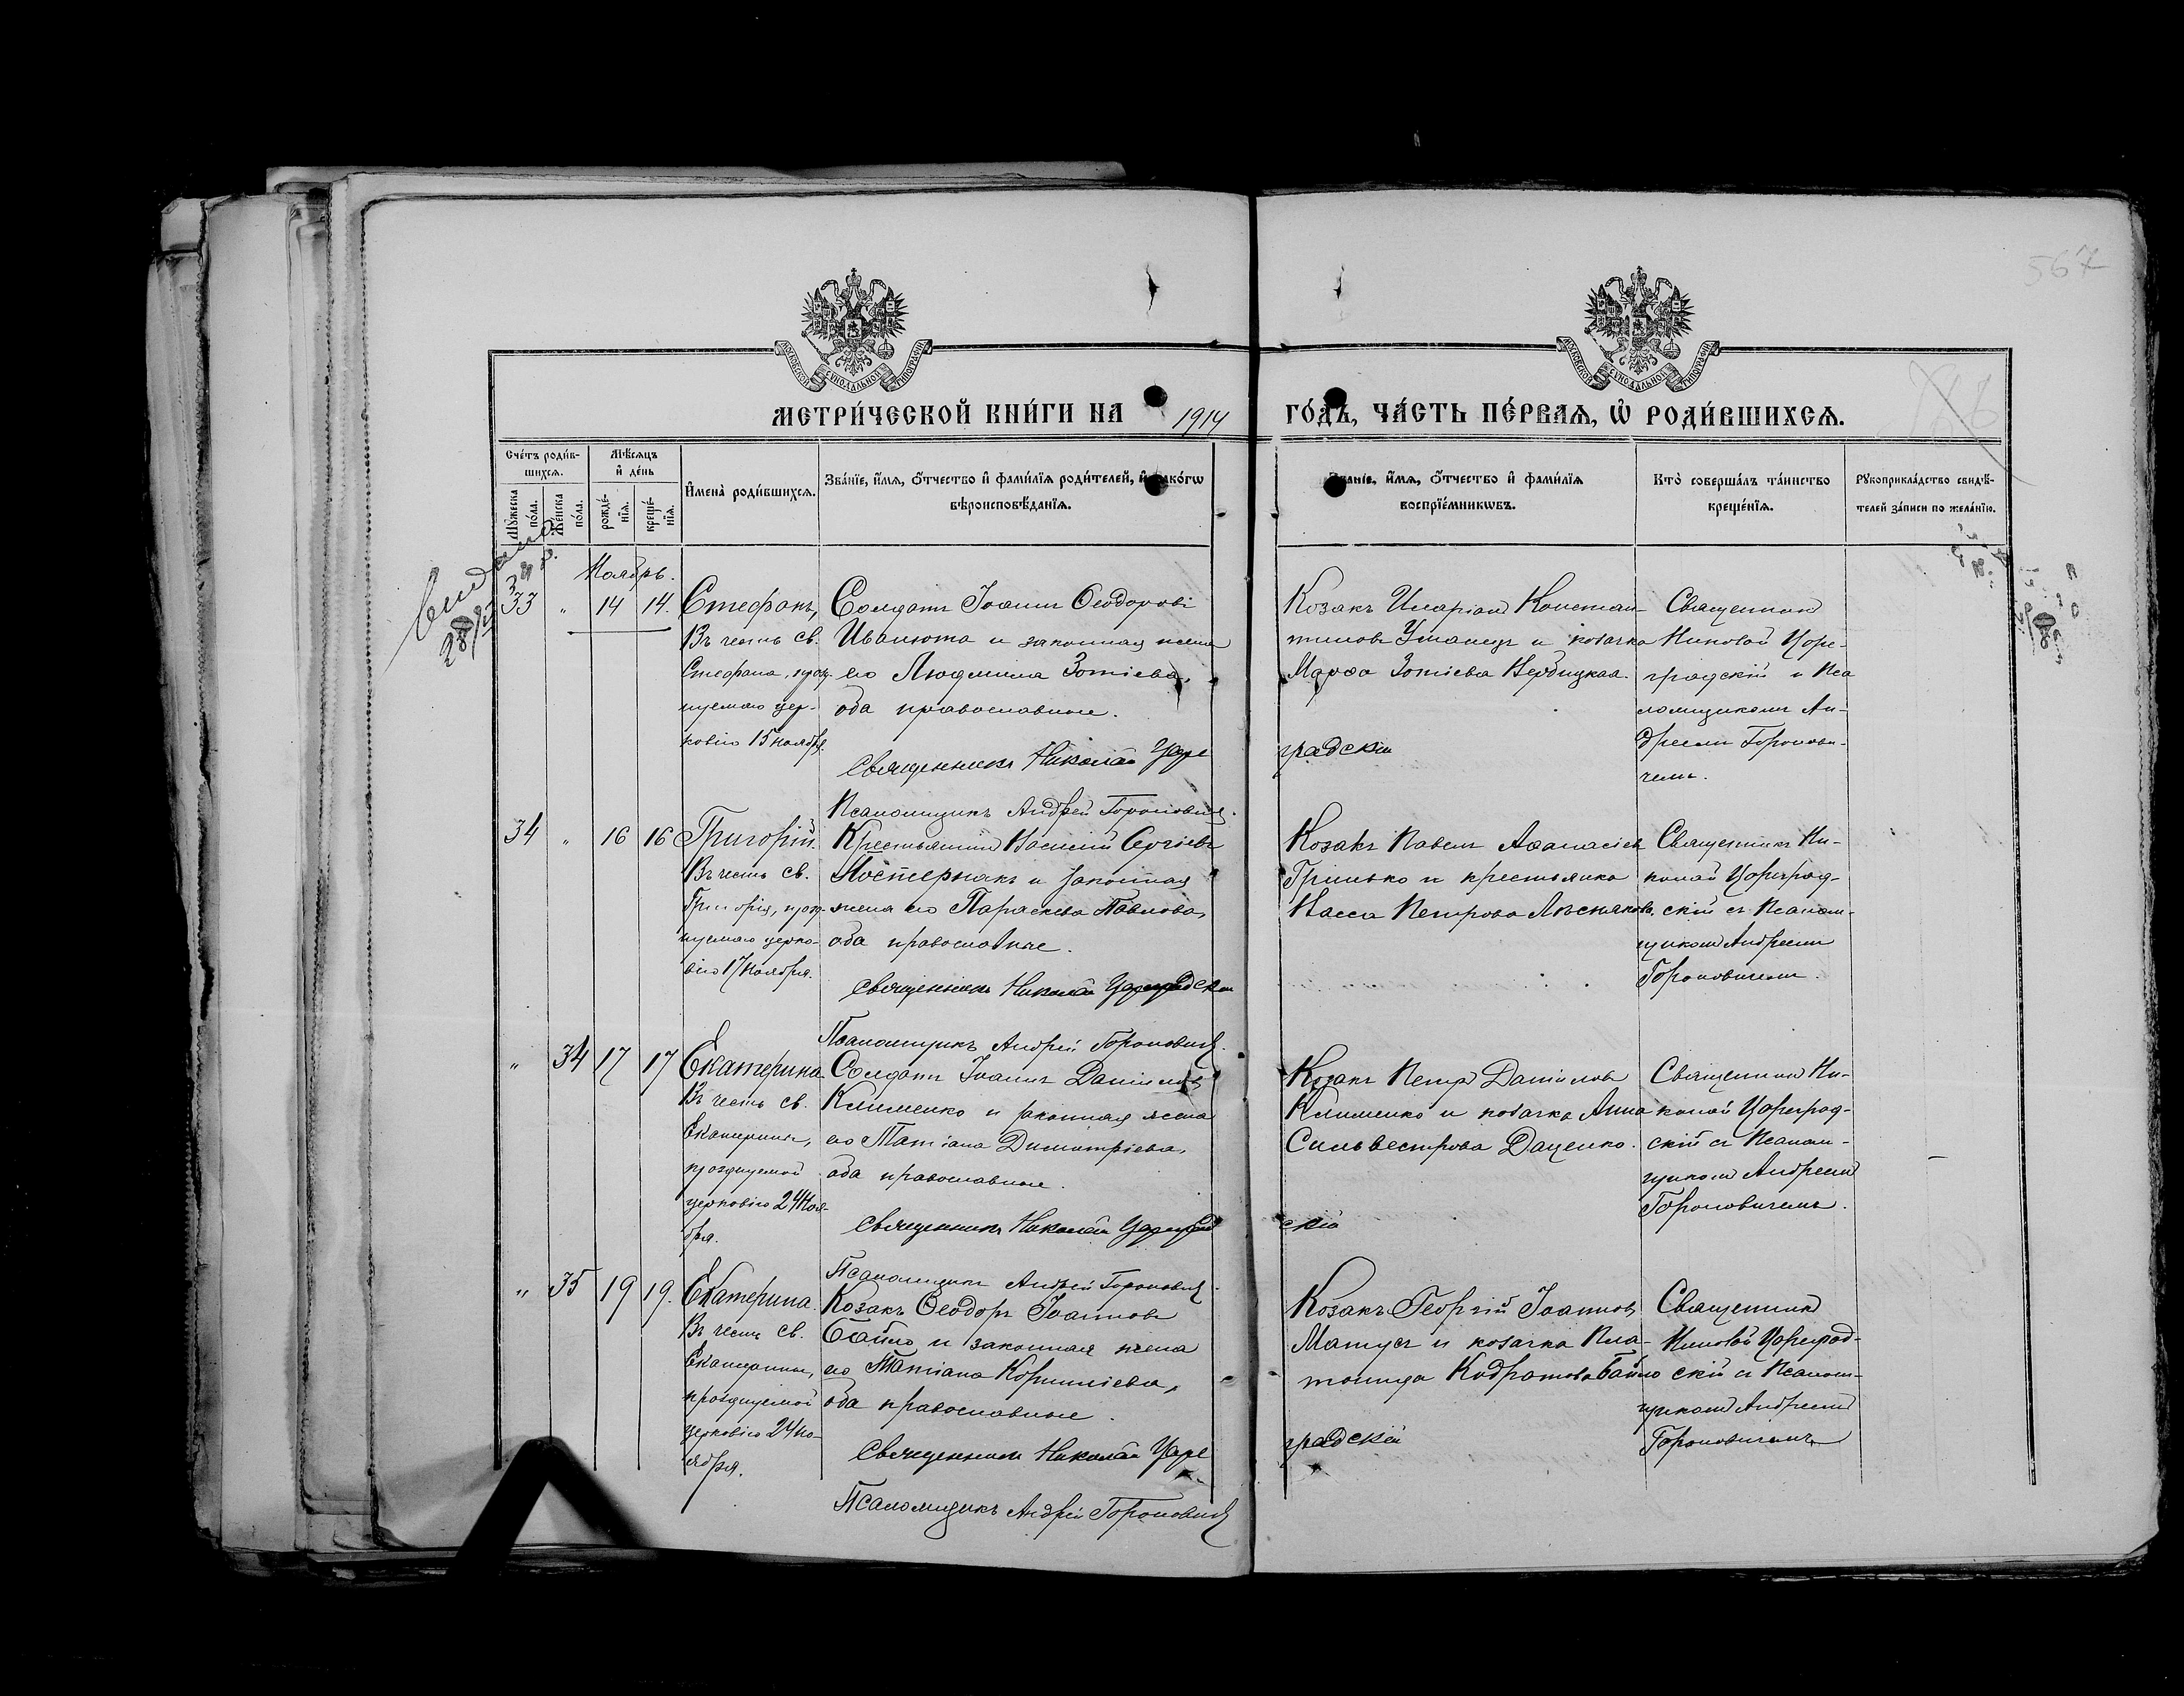 567
МОСКОВСКОЙ СѴНОДАЛЬНОЙ ТИПОГРАФІИ
МОСКОВСКОЙ СѴНОДАЛЬНОЙ ТИПОГРАФІИ
МЕТРИ́ЧЕСКОЙ КНИ́ГИ НА 1914 ГО́ДЪ, ЧА́СТЬ ПЕ́РВАѦ, Ѡ҆ РОДИ́ВШИХСѦ.
Сче́тъ роди́в-
шихсѧ.
Мꙋ́жеска по́ла.
Же́нска по́ла.
Мѣ́сѧцъ
и҆ де́нь
рожде́-
нїѧ.
креще́-
нїѧ.
И҆мена̀ роди́вшихсѧ.
Зва́нїе, и҆́мѧ, ѻ҆́тчество и҆ фами́лїѧ роди́телей, и҆ како́гѡ
вѣроисповѣ́данїѧ.
Зва́нїе, и҆́мѧ, ѻ҆́тчество и҆ фами́лїѧ
воспрїе́мникѡвъ.
Кто̀ соверша́лъ та́инство
креще́нїѧ.
Рꙋкоприкла́дство свидѣ́-
телей за́писи по жела́нїю.
Ноябрь.
33 " 14 14.
Стефанъ,
Въ честь св.
Стефана, празд-
нуемаго цер-
ковію 15 ноября.
Солдатъ Іоаннъ Ѳеодоровъ
Иванюта и законная жена
его Людмила Зотіева,
оба православные.
Священникъ Николай Царе
градскій
Псаломщикъ Андрей Гороновичъ.
Козакъ Иларіон Констан-
тиновъ Уманецъ и козачка
Марѳа Зотіева Вербицкая.
Священник
Николай Царе-
градскій и Пса
ломщикомъ Ан-
дреемъ Горонови-
чемъ.
34 " 16 16
Григорій.
Въ честь св.
Григорія, празд-
нуемаго церко-
вію 17 ноября.
Крестьянинъ Василій Сергіевъ
Костернакъ и законная
жена его Параскева Павлова,
оба православные.
Священникъ Николай Цареградскій
Псаломщикъ Андрей Гороновичъ.
Козакъ Павелъ Аѳанасіев
Гринько и крестьянка
Насса Петрова Лѣснякова.
Священникъ Ни-
колай Цареград-
скій съ Псалом-
щикомъ Андреемъ
Гороновичемъ.
" 34 17 17
Екатерина
Въ честь св.
Екатерины,
празднуемой
церковію 24 Ноя-
бря.
Солдатъ Іоаннъ Даніиловъ
Клименко и законная жена
его Татіана Димитріева,
оба православные.
Священникъ Николай Цареград
скій
Псаломщикъ Андрей Гороновичъ.
Козакъ Петръ Даніиловъ
Клименко и козачка Анна
Сильвестрова Даценко.
Священникъ Ни-
колай Цареград-
скій съ Псалом-
щикомъ Андреемъ
Гороновичемъ.
" 35 19 19.
Екатерина.
Въ честь св.
Екатерины,
празднуемой
церковію 24 но-
ября.
Козакъ Ѳеодоръ Іоанновъ
Байло и законная жена
его Татіана Корниліева,
оба православные.
Священникъ Николай Царе
градскій
Псаломщикъ Андрей Гороновичъ
Козакъ Георгій Іоанновъ
Матусъ и козачка Пла-
тонида Кодратова Байло
Священникъ
Николай Цареград-
скій съ Псалом-
щикомъ Андреемъ
Гороновичемъ